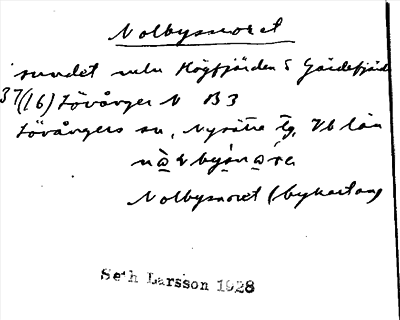 Nolbysnoret
sundet mln Högfjärden & Gärdefjärd
37(16) Lövånger N B3
Lövångers sn, Nysätra tg, Vb län
Nolbysnoret (bykartan)
Seth Larsson 1928